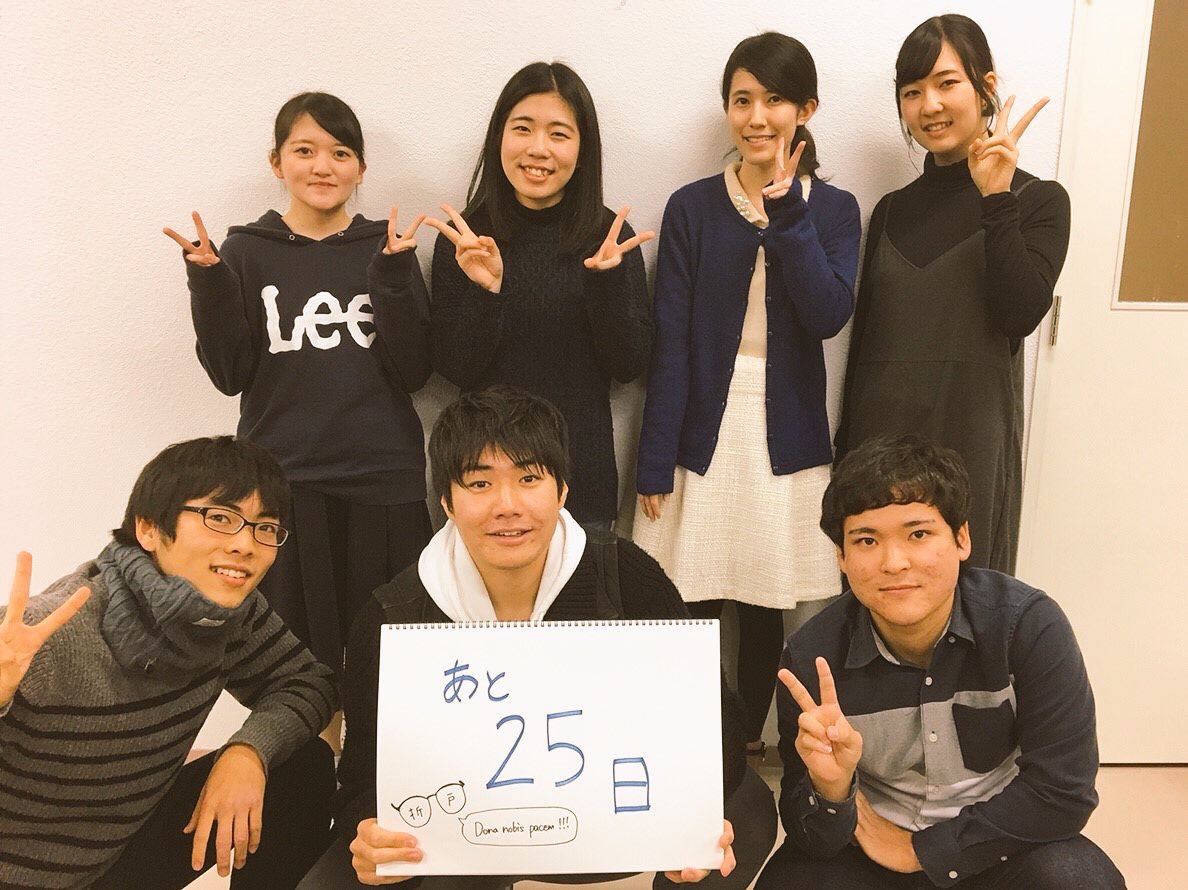 Lee
あと
25
日
折戸
Dona nobis pacem!!!